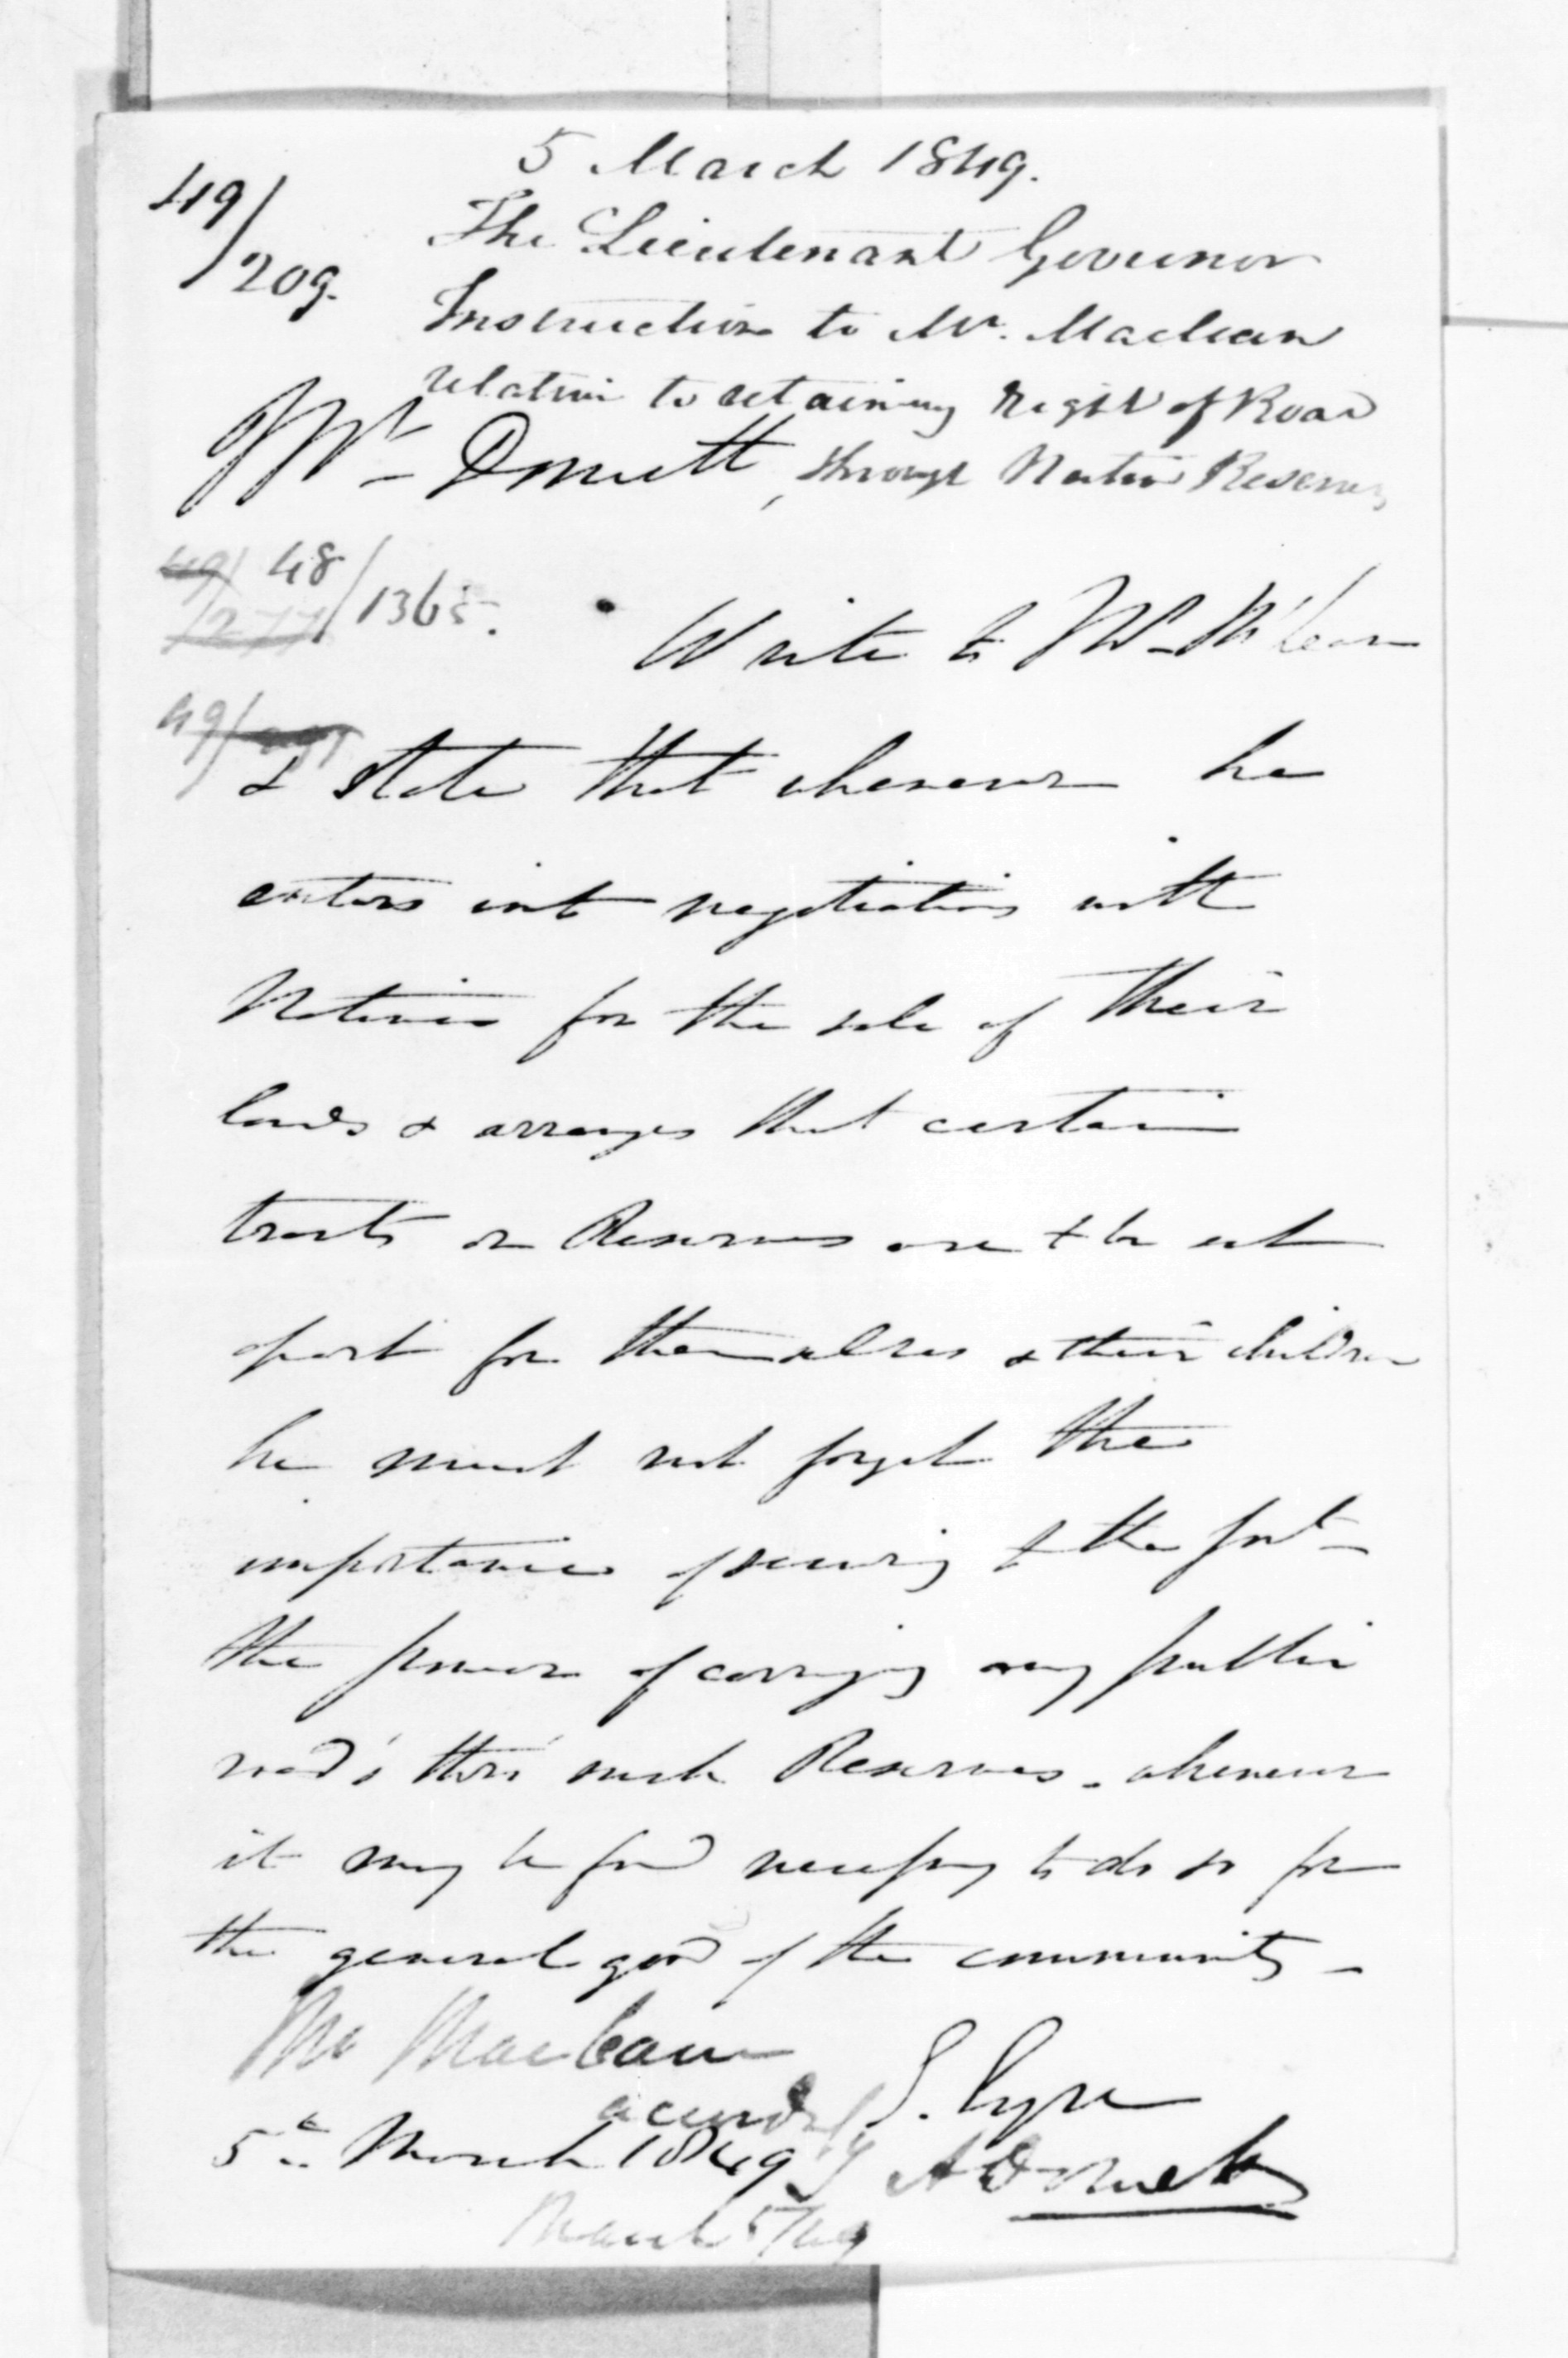 5 March 1849.
49/209.
The Lieutenant Governor
Instruction to Mr. Maclean
relative to retaining right of Road
through Native Reserves
Mr Domett,
49/277 48/1365.
Write to Mr McLean
49/
& state that whenever he
enters into negotiations with
Natives for the sale of their
lands & arranges that certain
tracts or Reserves are to be set
apart for themselves & their children
he must not forget the
importance of securing to the Govt
the power of carrying any public
road's thro' such Reserves - whenever
it may be found necessary to do so for
the general good of the community -
Mr Maclean
accordgly
E. Eyre
5th March 1849
A Domett
March 5/49